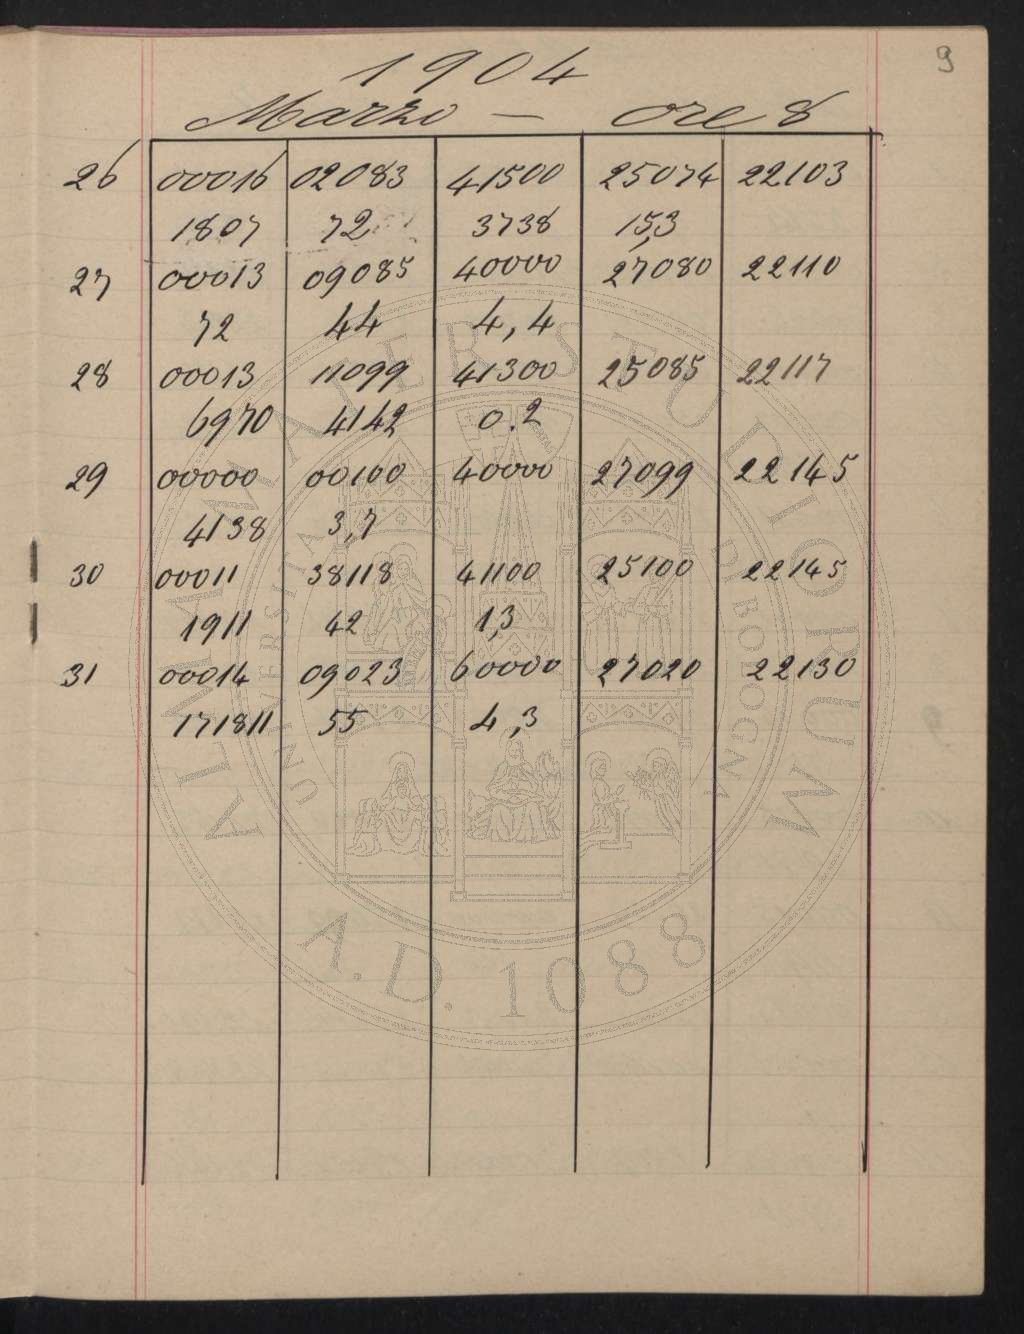 9
1904
Marzo — ore 8
26 00016 02083 41500 25074 22103
1807 72 3738 15,3
27 00013 09085 40000 27080 22110
72 44 4,4
28 00013 11099 41300 25085 22117
6970 4142 0.2
29 00000 00100 40000 27099 22145
4138 3,7
30 00011 38118 41100 25100 22145
1911 42 1,3
31 00014 09023 60000 27020 22130
171811 55 4,3
ALMA MATER STUDIORUM
UNIVERSITÀ DI BOLOGNA
A.D. 1088